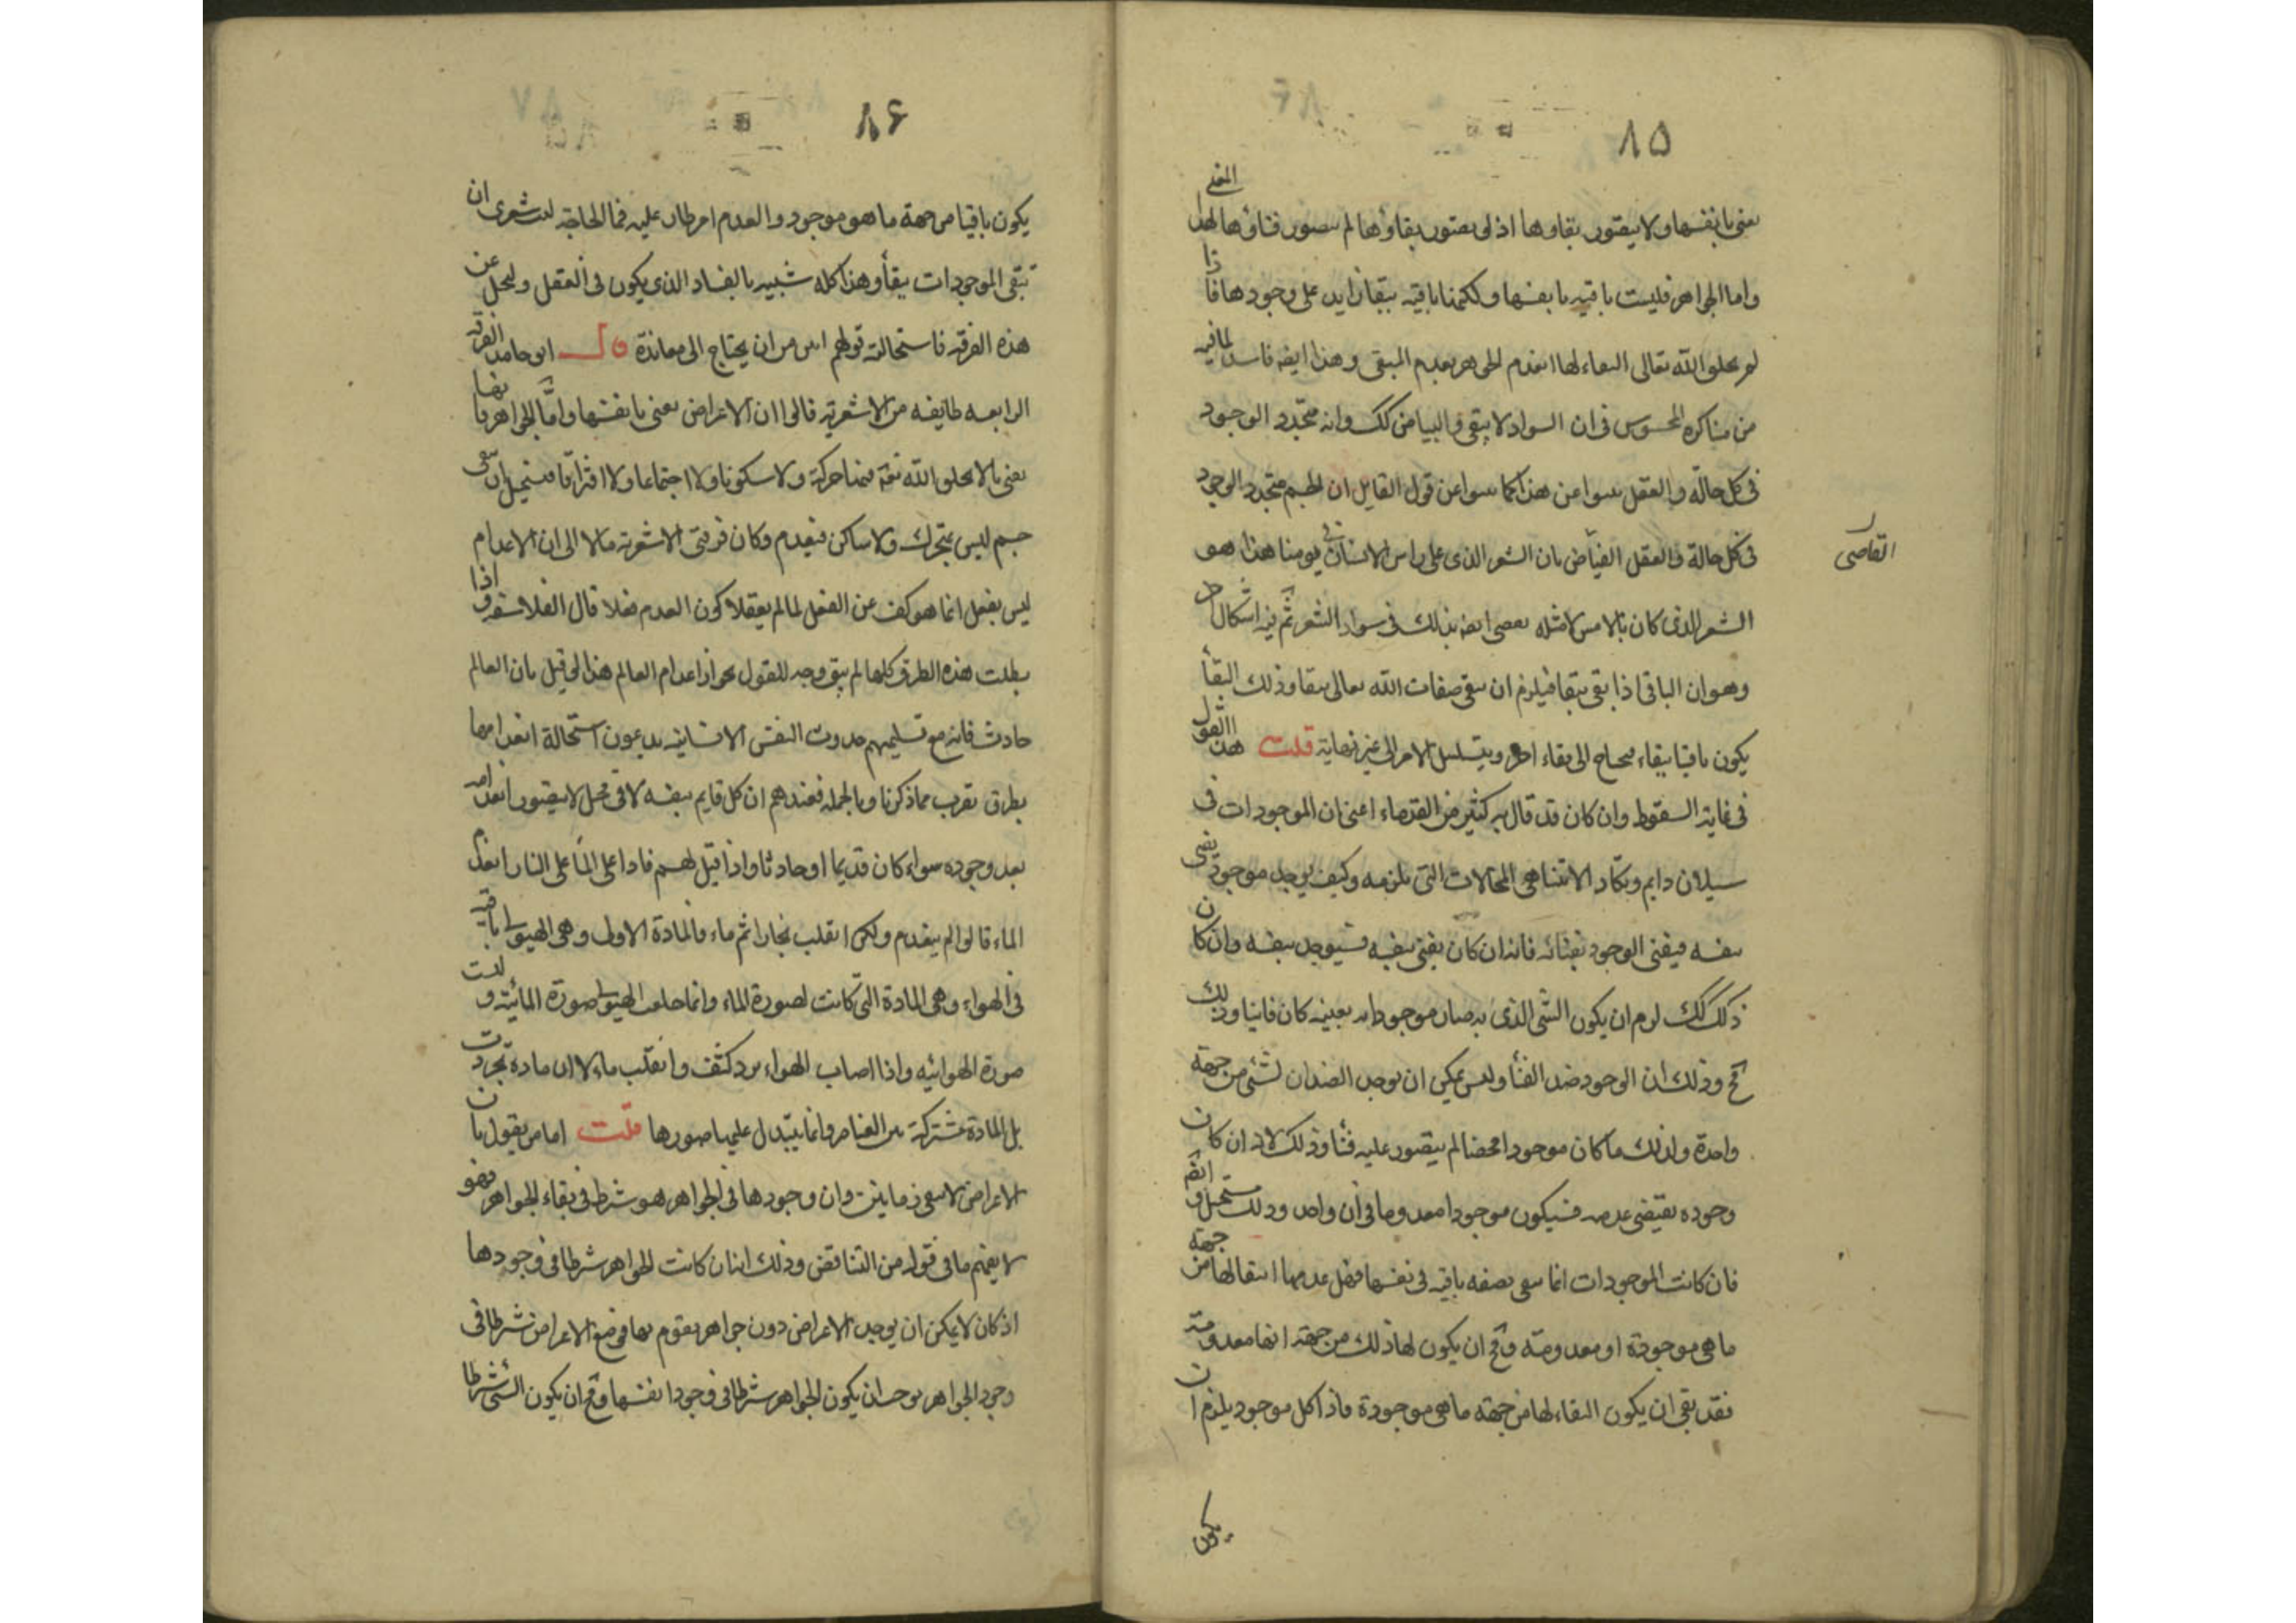 ٨٥
تفنى بانفسها ولا يتصور بقاوها اذ لو تصور بقاؤها لم يتصور فناؤها لهذا المعنى
واما الجواهر فليست باقية بانفسها ولكنها باقية ببقا زايد على وجودها فاذا
لم يخلق الله تعالى البقاء لها انعدم الجوهر بعدم المبقى وهذا ايضا فاسد لما فيه
من مناكره المحسوس فى ان السواد لا يبقى والبياض كك وانه متجدد الوجود
فى كل حالة والعقل ينبوا عن هذا كما ينبوا عن قول القايل ان الجسم متجدد الوجود
فى كل حالة والعقل القياض بان الشعر الذى على راس الانسان فى يومنا هذا هو
القاضى
الشعر الذى كان بالامس لا مثله يقضى ايضا بذلك فى سواد الشعر ثم فيه اشكال اخر
وهو ان الباقى اذا بقى ببقا فيلزم ان يبقى صفات الله تعالى ببقا وذلك البقأ
يكون باقيا ببقاء فيحتاج الى بقاء اخر ويتسلسل الامر الى غير نهاية قلت هذا القول
فى غاية السقوط وان كان قد قال به كثير من القدماء اعنى ان الموجودات فى
سيلان دايم وتكاد لا تتناهى المحالات التى تلزمه وكيف يوجد موجود يفنى
بنفسه فيفنى الوجود بفنائه فانه ان كان يفنى بنفسه فسيوجد بنفسه وان كان
ذلك كك لزم ان يكون الشئ الذى به صار موجودا به بعينه كان فانيا وذلك
مح وذلك ان الوجود ضد الفنأ وليس يمكن ان يوجد الضدان لشئ من جهة
واحدة ولذلك ما كان موجودا محضا لم يتصور عليه فنأ وذلك لانه ان كان
وجوده يقتضى عدمه فسيكون موجودا معدوما فى ان واحد وذلك مستحيل وايضا
فان كانت الموجودات انما تبقى بصفة باقية فى نفسها فهل عدمها انتقالها من جهة
ما هى موجودة او معدومة ومح ان يكون لها ذلك من جهة انها معدومة
فقد بقى ان يكون البقاء لها من جهة ما هى موجودة فاذا كل موجود يلزم ان
يكون
٨٦
يكون باقيا من جهة ما هو موجود والعدم امر طار عليه فما الحاجة ليت شعرى ان
تبقى الموجودات ببقأ وهذا كله شبيه بالفساد الذى يكون فى العقل ولنخل عن
هذه الفرقة فاستحالة قولهم ابين من ان يحتاج الى معاندة قال ابو حامد الفرقة
الرابعه طايفه من الاشعرية قالوا ان الاعراض تفنى بانفسها وامّا الجواهر فانها
تفنى بالا يخلق الله تعه فيها حركة ولا سكونا ولا اجتماعا ولا افتراقا فيستحيل ان يبقى
جسم ليس بمتحرك ولا ساكن فينعدم وكان فرقتى الاشعرية مالا الى ان الاعدام
ليس بفعل انما هو كف عن الفعل لما لم يعقلا كون العدم فعلا قال الفلاسفه واذا
بطلت هذه الطرق كلها لم يبق وجه للقول بجواز اعدام العالم هذا لو قيل بان العالم
حادث فانه مع تسليمهم حدوث النفس الانسانية يدعون استحالة انعدامها
بطرق تقرب مما ذكرنا وبالجملة فعندهم ان كل قايم بنفسه لا فى محل لا يتصور انعدامه
بعد وجوده سواء كان قديما او حادثا واذا قيل لهم فاذا اغلى المأ على النار انعدم
الماء قالوا لم ينعدم ولكن انقلب بخارا ثم ماء فالمادة الاولى وهى الهيولى باقية
فى الهواء وهى المادة التى كانت لصورة الماء وانما خلعت الهيولى صورة المائية ولبست
صورة الهوائيه واذا اصاب الهواء برد كثف وانقلب ماء لا ان مادة تجردت
بل المادة مشتركة بين العناصر وانما يتبدل عليها صورها قلت اما من يقول بان
الاعراض لا تبقى زمانين وان وجودها فى الجواهر هو شرط فى بقاء الجواهر فهو
لا يفهم ما فى قوله من التناقض وذلك انه ان كانت الجواهر شرطا فى وجودها
اذ كان لا يمكن ان يوجد الاعراض دون جواهر يقوم بها فوضع الاعراض شرطا فى
وجود الجواهر يوجب ان يكون الجواهر شرطا فى وجود انفسها ومح ان يكون الشئ شرطا